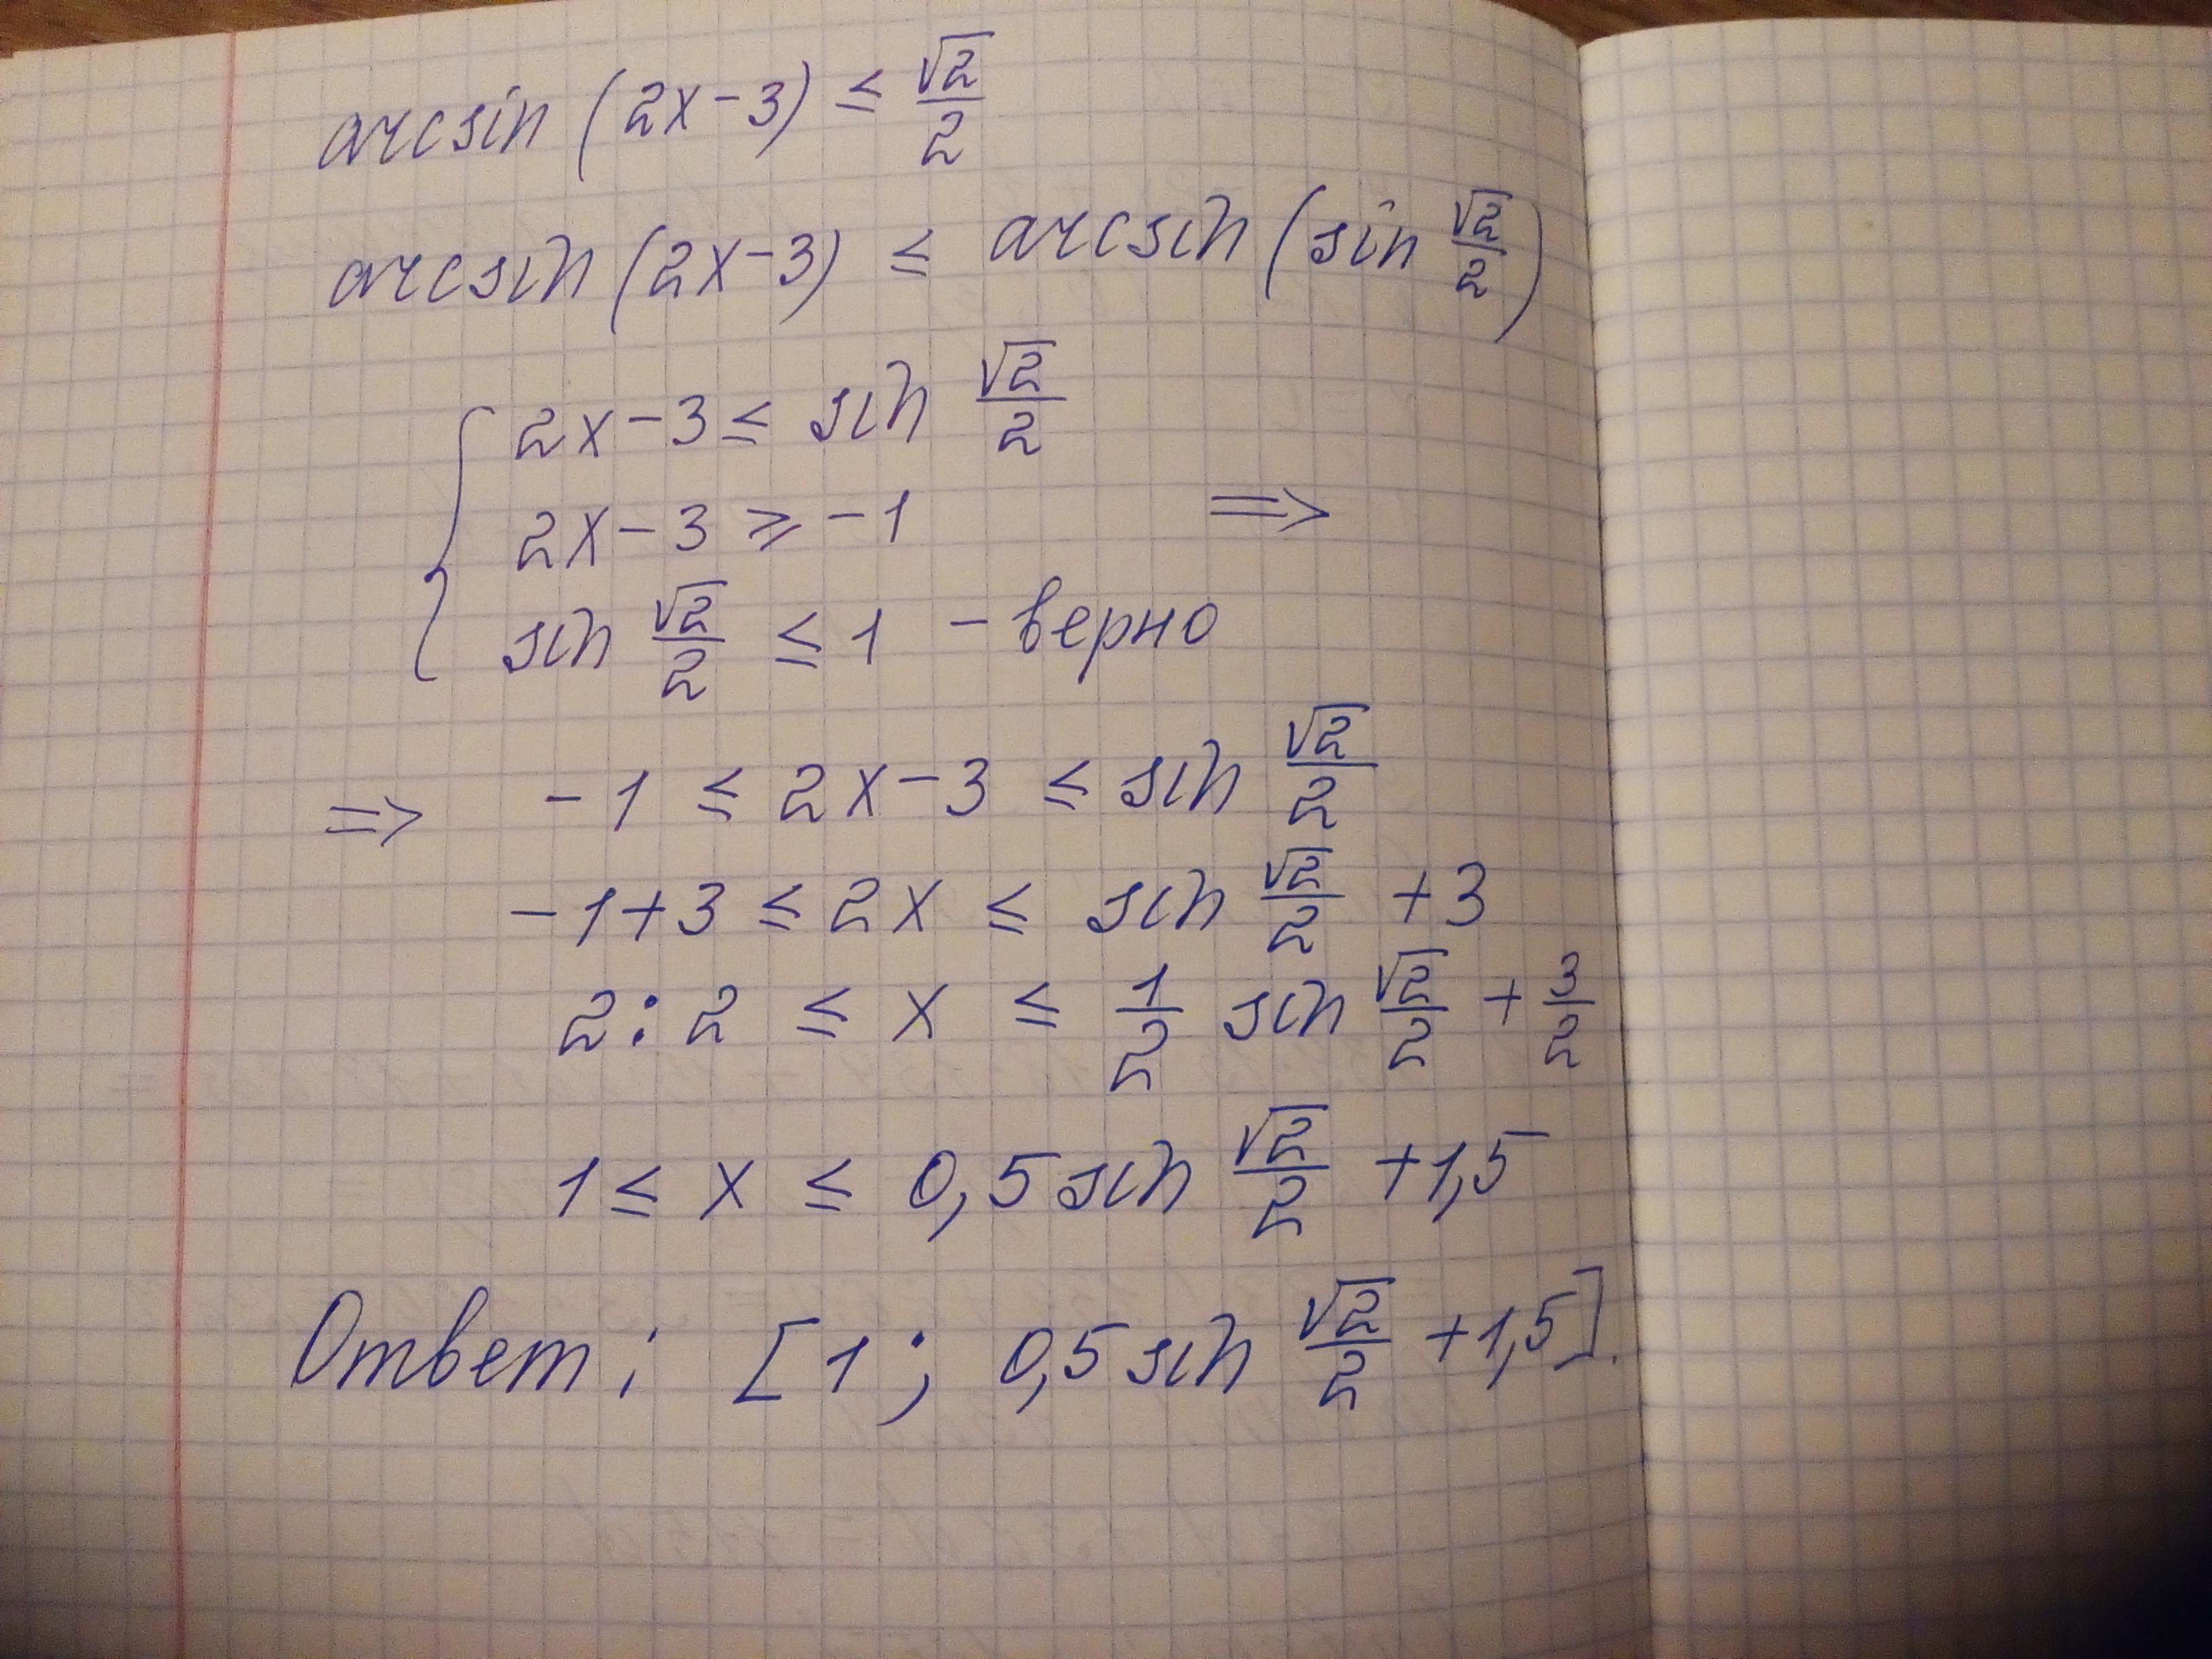 arcsin (2x-3) ≤ √2/2
arcsin (2x-3) ≤ arcsin (sin √2/2)
{ 2x-3 ≤ sin √2/2
2x-3 ≥ -1 ⇒
sin √2/2 ≤ 1 - верно
⇒ -1 ≤ 2x-3 ≤ sin √2/2
-1+3 ≤ 2x ≤ sin √2/2 +3
2:2 ≤ x ≤ 1/2 sin √2/2 + 3/2
1 ≤ x ≤ 0,5 sin √2/2 +1,5
Ответ: [1; 0,5 sin √2/2 +1,5].